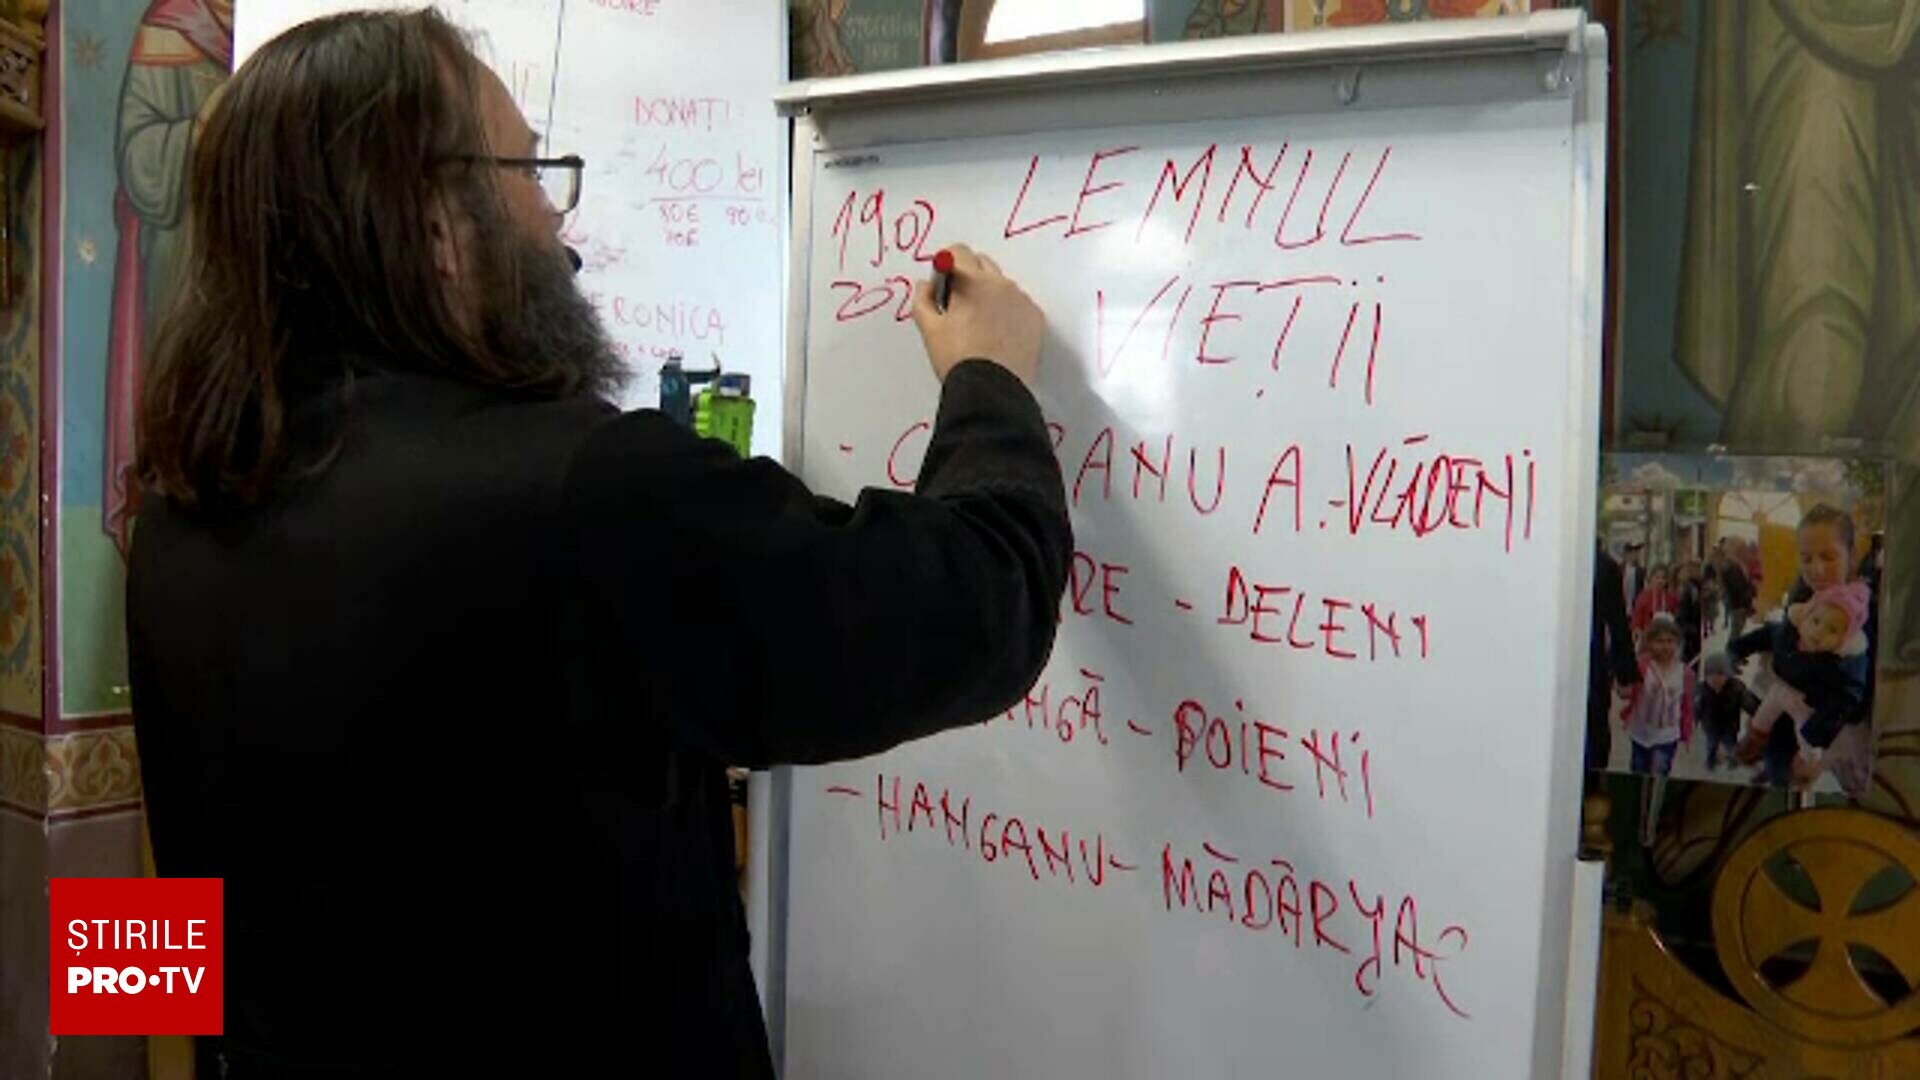 DONAȚI
400 lei
ERONICA
19.02
202
LEMNUL
VIEȚII
- C ANU A. - VLĂDENI
RE - DELENI
NGĂ - POIENI
- HANGANU - MĂDÂRJAC
ȘTIRILE
PRO•TV